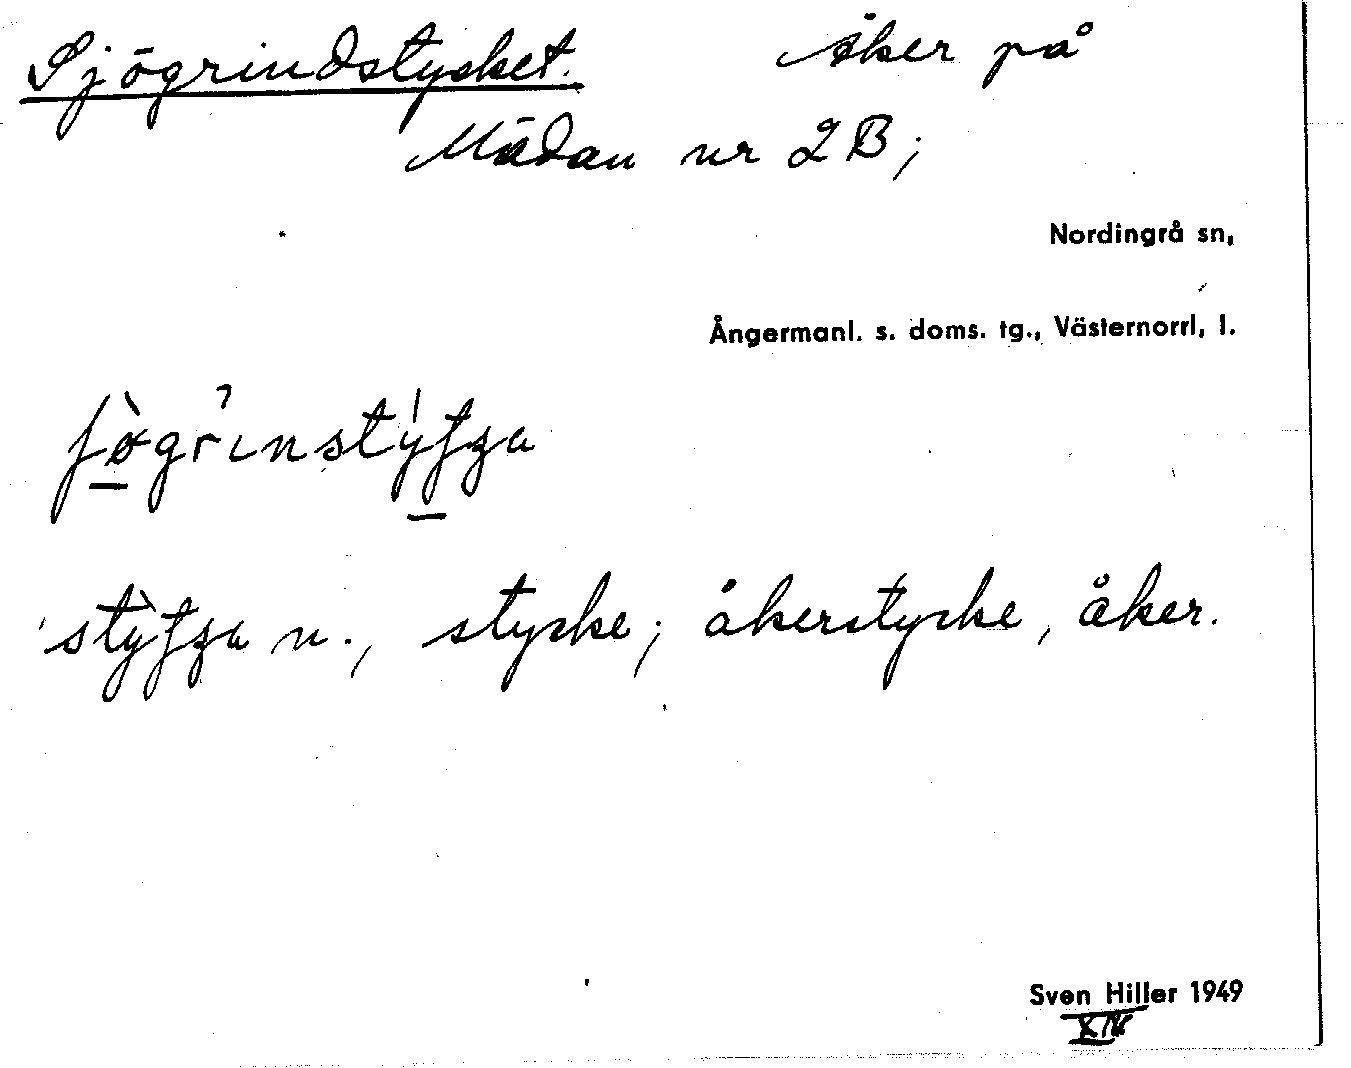 Sjögrindstycket. Åker på
Mädan nr 2 B;
Nordingrå sn,
Ångermanl. s. doms. tg., Västernorrl, l.
stycke; åkerstycke, åker.
Sven Hiller 1949
XIV